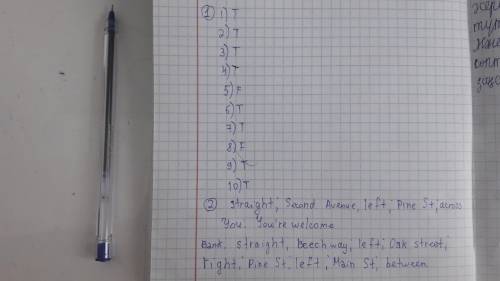 ① 1) T
2) T
3) T
4) T
5) F
6) T
7) T
8) F
9) T
10) T
② Straight; Second Avenue, left; Pine St; across
You. You're welcome
Bank, straight, Beech way; left; Oak street;
right; Pine St, left; Main St; between